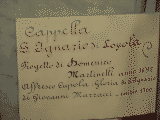 Cappella
S. Ignazio di Loyola
Progetto di Domenico
Martinelli anno 1692
Affresco Cupola: Gloria di S. Ignazio
di Giovanni Marracci